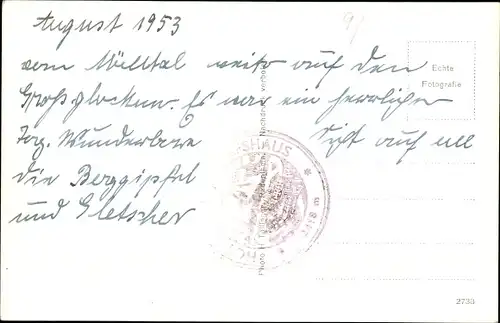 August 1953
vom Mölltal weiter auf den
Großglockner. Es war ein herrlicher
Tag. Wunderbare Sicht auf all
die Berggipfel
und Gletscher
Echte
Fotografie
HAUS
2418 m
Photo H.
Nachdruck verboten
2733